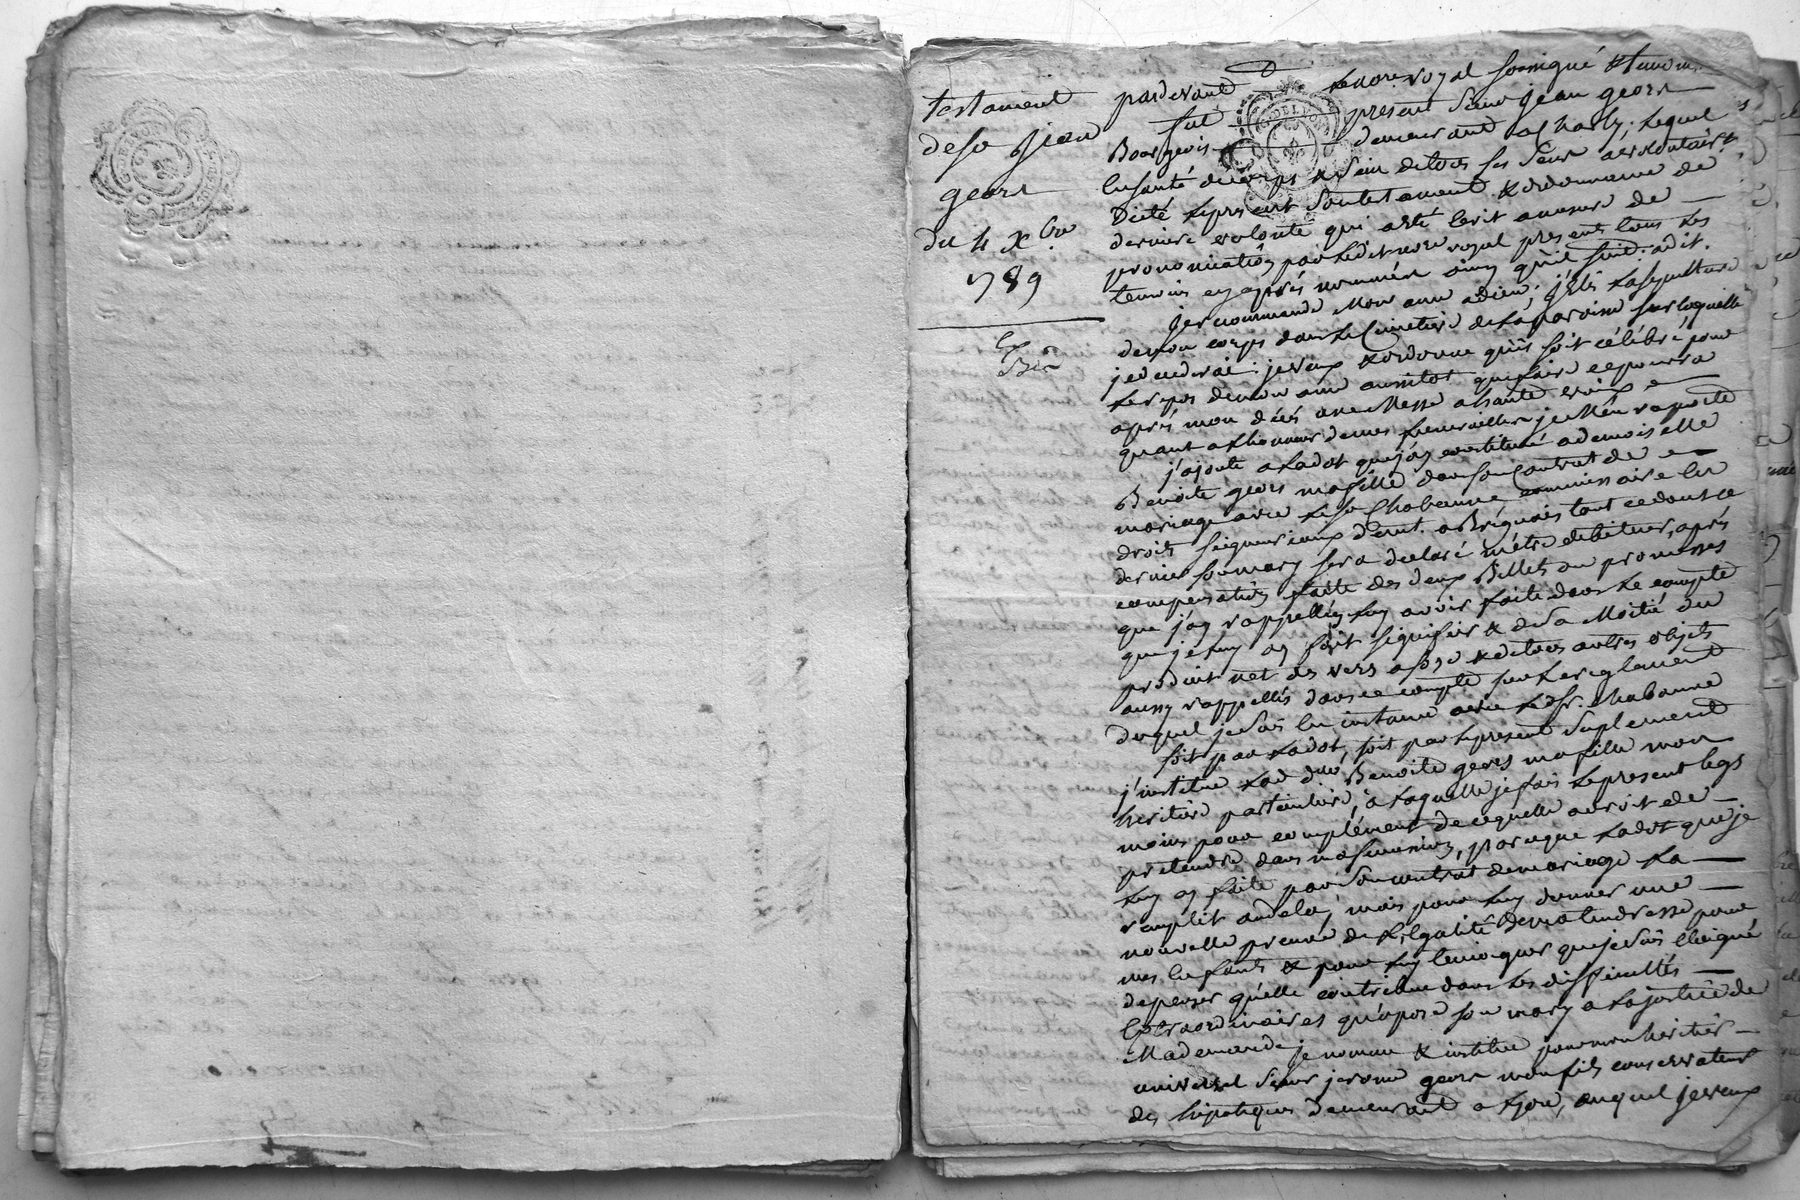 G. DE LYON
testament
de sr Jean
geors
du 4 Xbre
1789
Exp
pardevant le nore royal soussigné & temoins
fut present sieur jean geors
Bourgeois demeurant a Charly, lequel
en santé de corps & sain de tous ses sens a volontairt
dicté le present son testament & ordonnance de
derniere volonté qui a eté ecrit a mesure de
prononciation par ledit nore royal presents tous les
temoins cy après nommés ainsy qu'il suit: a dit.
je recommande Mon ame a dieu; j'elis la sepulture
de mon corps dans le Cimetiere de la paroisse sur laquelle
je decederai: je veux & ordonne qu'il soit célébré pour
le repos de mon ame aussitot que faire ce pourra
aprés mon décés une Messe a haute voix
quant a l'honneur de mes funerailles je m'en raporte
j'ajoute a la dot que j'ay constitué a demoiselle
Benoite geors ma fille dans son Contrat de
mariage avec le sr Chabanne commissaire en
droits seigneuriaux demt. a Brignais tout ce dont ce
dernier son mary sera declaré m'être debiteur, aprés
compensation faite des deux Billets ou promesses
que j'ay rappellés luy avoir faite dans le compte
que je luy ay fait signifier & de la Moitié du
produit net des vers a soye & de tous autres objets
aussy rappellés dans ce compte sur le reglement
duquel je suis en instance avec led. sr. chabanne
soit par la dot, soit par le present suplement
j'institue lad dlle Benoite geors ma fille mon
heritiere particuliere, a laquelle je fais le present legs
moins pour complément de ce quelle auroit de
pretendre dans ma succession, parceque la dot que je
luy ay faite par son contrat de mariage la
remplit audela, mais pour luy donner une
nouvelle preuve de l'egalité de ma tendresse pour
mes Enfants & pour luy temoigner que je suis eloigné
de penser qu'elle contribue dans les difficultés
Extraordinaires qu'opose son mary a la justice de
Ma demande je nomme & institue pour mon heritier
universel sieur jerome geors mon fils conservateur
des hipoteques demeurant a Lyon, auquel je veux